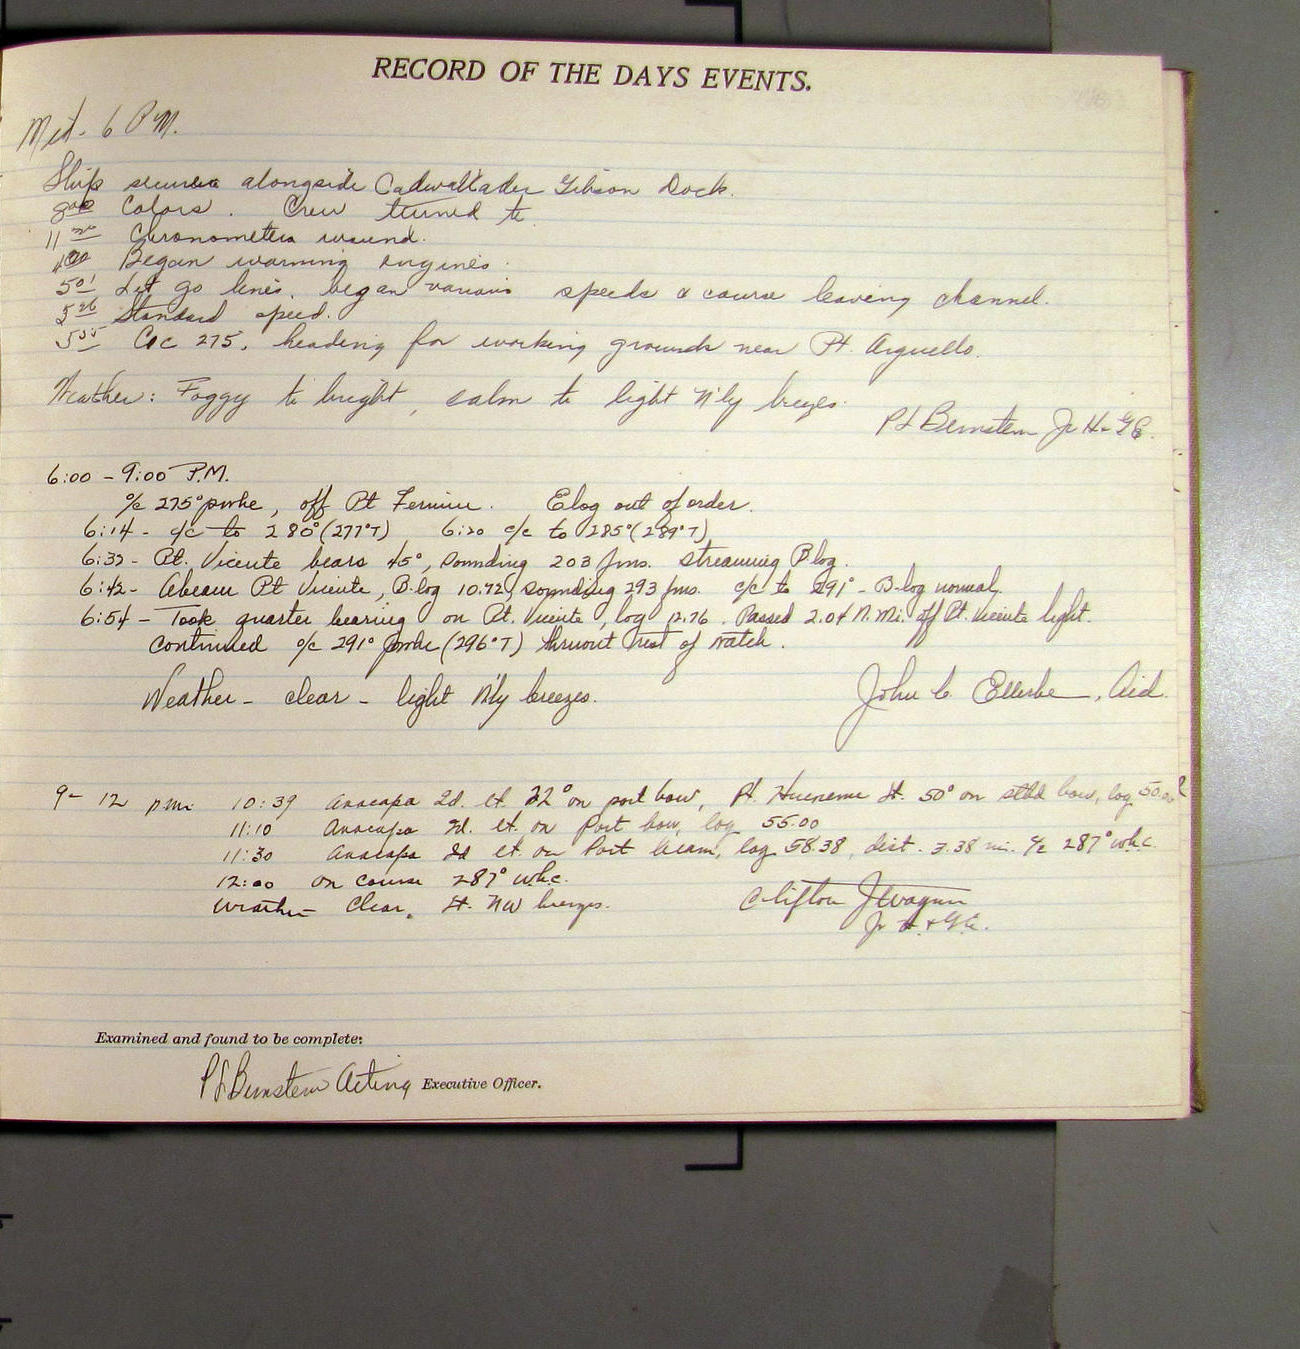 RECORD OF THE DAYS EVENTS.
Mid - 6 P.M.
Ship secured alongside Cadwallader Gibson Dock.
800 Colors. Crew turned to
11 Chronometers wound.
400 Began warming engines.
501 Let go lines, began various speeds & course leaving channel.
526 Standard speed.
535 C/c 275, heading for working grounds near Pt. Arguello.
Weather: Foggy to bright, calm to light N'ly breezes.
PL Bernstein Jr H & GE.
6:00 - 9:00 P.M.
o/c 275° pwhc, off Pt Fermin. Elog out of order.
6:14 - c/c to 280° (277°T) 6:20 c/c to 285° (289°T)
6:32 - Pt. Vicente bears 45°, sounding 203 fms. streaming Blog.
6:42 - Abeam Pt Vicente, B.log 10.72, sounding 293 fms. c/c to 291° - B-log normal.
6:54 - Took quarter bearing on Pt. Vicente, log 12.76. Passed 2.04 N.Mi. off Pt. Vicente light.
continued o/c 291° pwhc (296°T) thruout rest of watch.
Weather - clear - light N'ly breezes.
John C. Ellerbe, Aid.
9 - 12 p.m. 10:39 Anacapa Id. lt. 22° on port bow, Pt. Hueneme lt. 50° on stbd bow, log 50.00
11:10 Anacapa Id. lt. on Port bow, log 55.00
11:30 Anacapa Id lt. on Port beam, log 58.38, dist. 3.38 mi. c/c 287° whc.
12:00 on course 287° whc.
Weather Clear, lt. NW breezes.
Clifton J Wagner
Jr H. & G.E.
Examined and found to be complete:
PL Bernstein Acting Executive Officer.